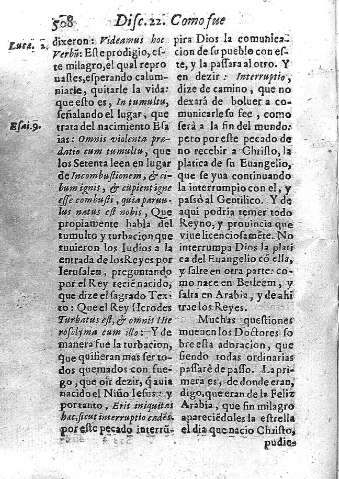 508 Disc. 22. Como fue
Luca. 2.
dixeron: Videamus hoc
Verbũ: Este prodigio, es-
te milagro, el qual repro
uastes, esperando calum-
niarle, quitarle la vida:
que esto es, In tumultu,
señalando el lugar, que
Esai. 9.
trata del nacimiento Esa
ias: Omnis violenta præ-
datio cum tumultu, que
los Setenta leen en lugar
de Incombustionem, & ci-
bum ignit, & cupient igne
esse combusti, quia paruu-
lus natus est nobis, Que
propiamente habla del
tumulto y turbacion que
tuuieron los Iudios a la
entrada de los Reyes por
Ierusalem, preguntando
por el Rey reciẽ nacido,
que dize el sagrado Tex-
to: Que el Rey Herodes
Turbatus est, & omnis Hie
rosolyma cum illo: Y de
manera fue la turbacion,
que quisieran mas ser to-
dos quemados con fue-
go, que oir dezir, q̃ auia
nacido el Niño Iesus: y
portanto, Erit iniquitas
hæc, sicut interruptio cadẽs,
por este pecado interrũ-
pira Dios la comunica-
cion de su pueblo con es-
te, y la passara al otro. Y
en dezir: Interruptio,
dize de camino, que no
dexará de boluer a co-
municarle su fee, como
será a la fin del mundo:
pero por este pecado de
no recebir a Christo, la
platica de su Euangelio,
que se yua continuando
la interrumpio con el, y
passó al Gentilico. Y de
aqui podria temer todo
Reyno, y prouincia que
viue licenciosamẽte. No
interrumpa Dios la plati
ca del Euangelio cõ ella,
y salte en otra parte: co-
mo nace en Betleem, y
salta en Arabia, y de ahi
trae los Reyes.
Muchas questiones
mueuen los Doctores so
bre esta adoracion, que
siendo todas ordinarias
passarè de passo. La pri-
mera es, de donde eran,
digo, que eran de la Feliz
Arabia, que sin milagro
apareciẽdoles la estrella
el dia que nacio Christo,
pudie-